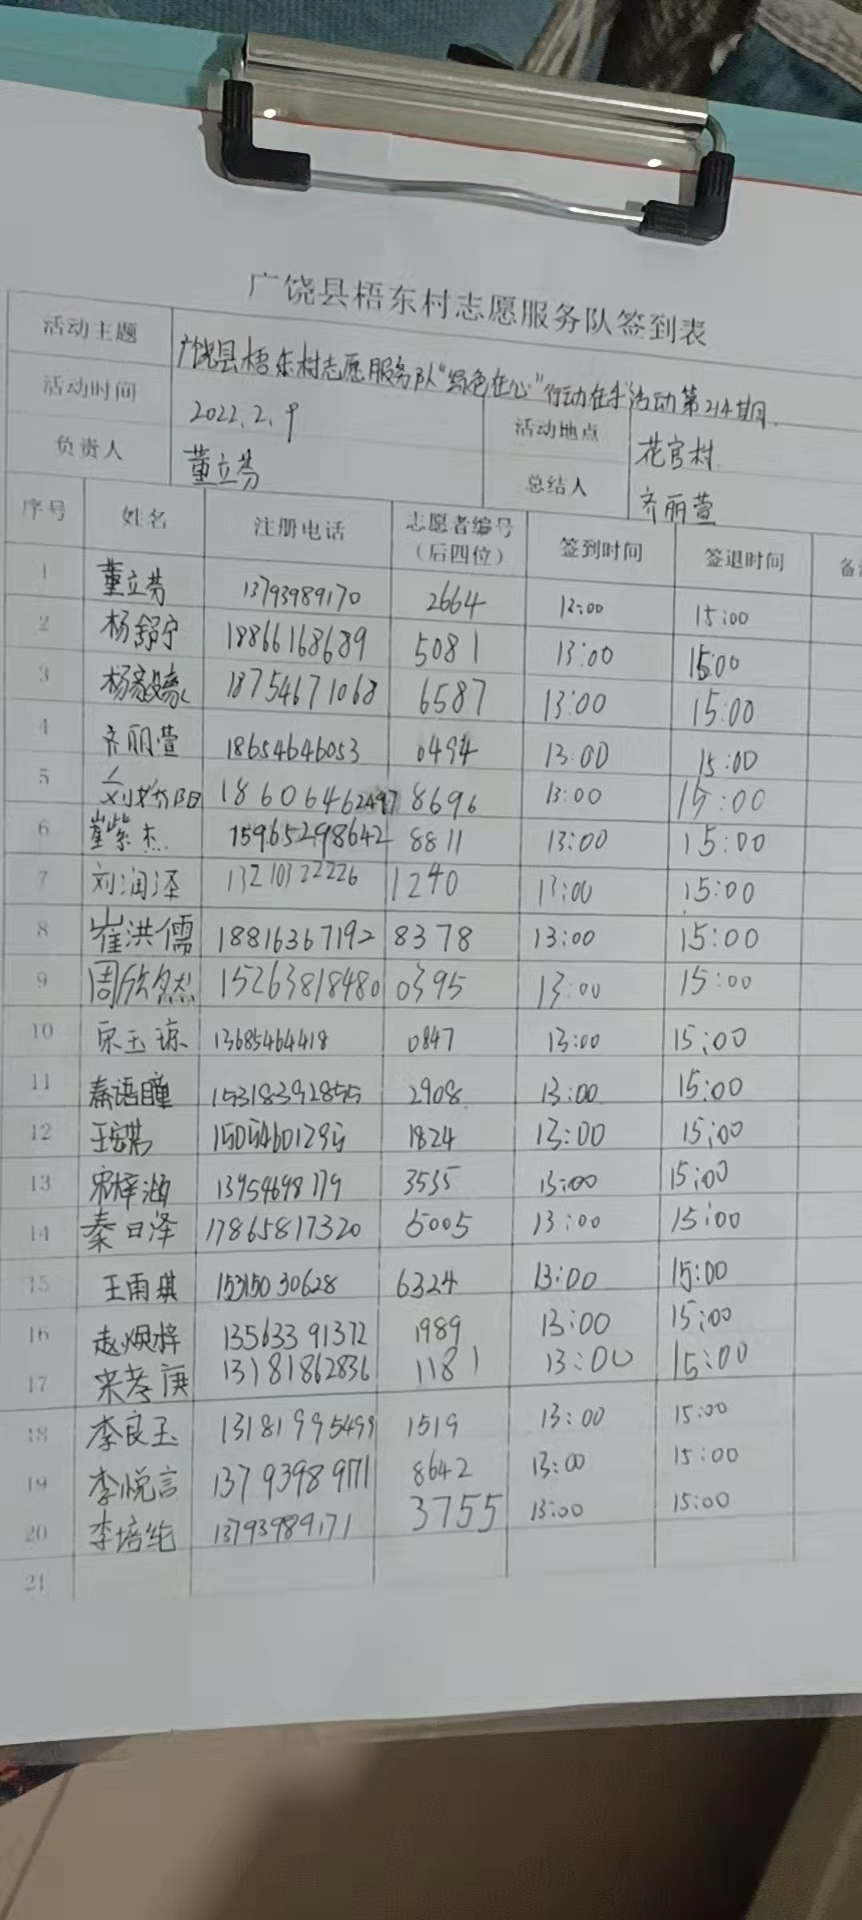 广饶县梧东村志愿服务队签到表
活动主题 广饶县梧东村志愿服务队“绿色在心”行动在手活动第214期
活动时间 2022.2.9 活动地点 花官村
负责人 董立芬 总结人 齐丽萱
序号 姓名 注册电话 志愿者编号（后四位） 签到时间 签退时间 备
1 董立芬 13793989170 2664 13:00 15:00
2 杨舒宁 18866168689 5081 13:00 15:00
3 杨 18754671068 6587 13:00 15:00
4 齐丽萱 18654646053 0494 13:00 15:00
5 刘 阳 18606462497 8696 13:00 15:00
6 崔紫杰 15965298642 8811 13:00 15:00
7 刘润泽 13210322226 1240 13:00 15:00
8 崔洪儒 18816367192 8378 13:00 15:00
9 周欣然 15263818480 0395 13:00 15:00
10 宋玉琼 13685464418 0847 13:00 15:00
11 秦语瞳 15318392855 2908 13:00 15:00
12 王 1824 13:00 15:00
13 宋梓涵 13954698179 3535 13:00 15:00
14 秦日泽 17865817320 5005 13:00 15:00
15 王雨琪 15315030628 6324 13:00 15:00
16 赵焕梓 13563391372 1989 13:00 15:00
17 宋 13181862836 1181 13:00 15:00
18 李良玉 13181995499 1519 13:00 15:00
19 李悦言 13793989171 8642 13:00 15:00
20 李培纯 13793989171 3755 13:00 15:00
21